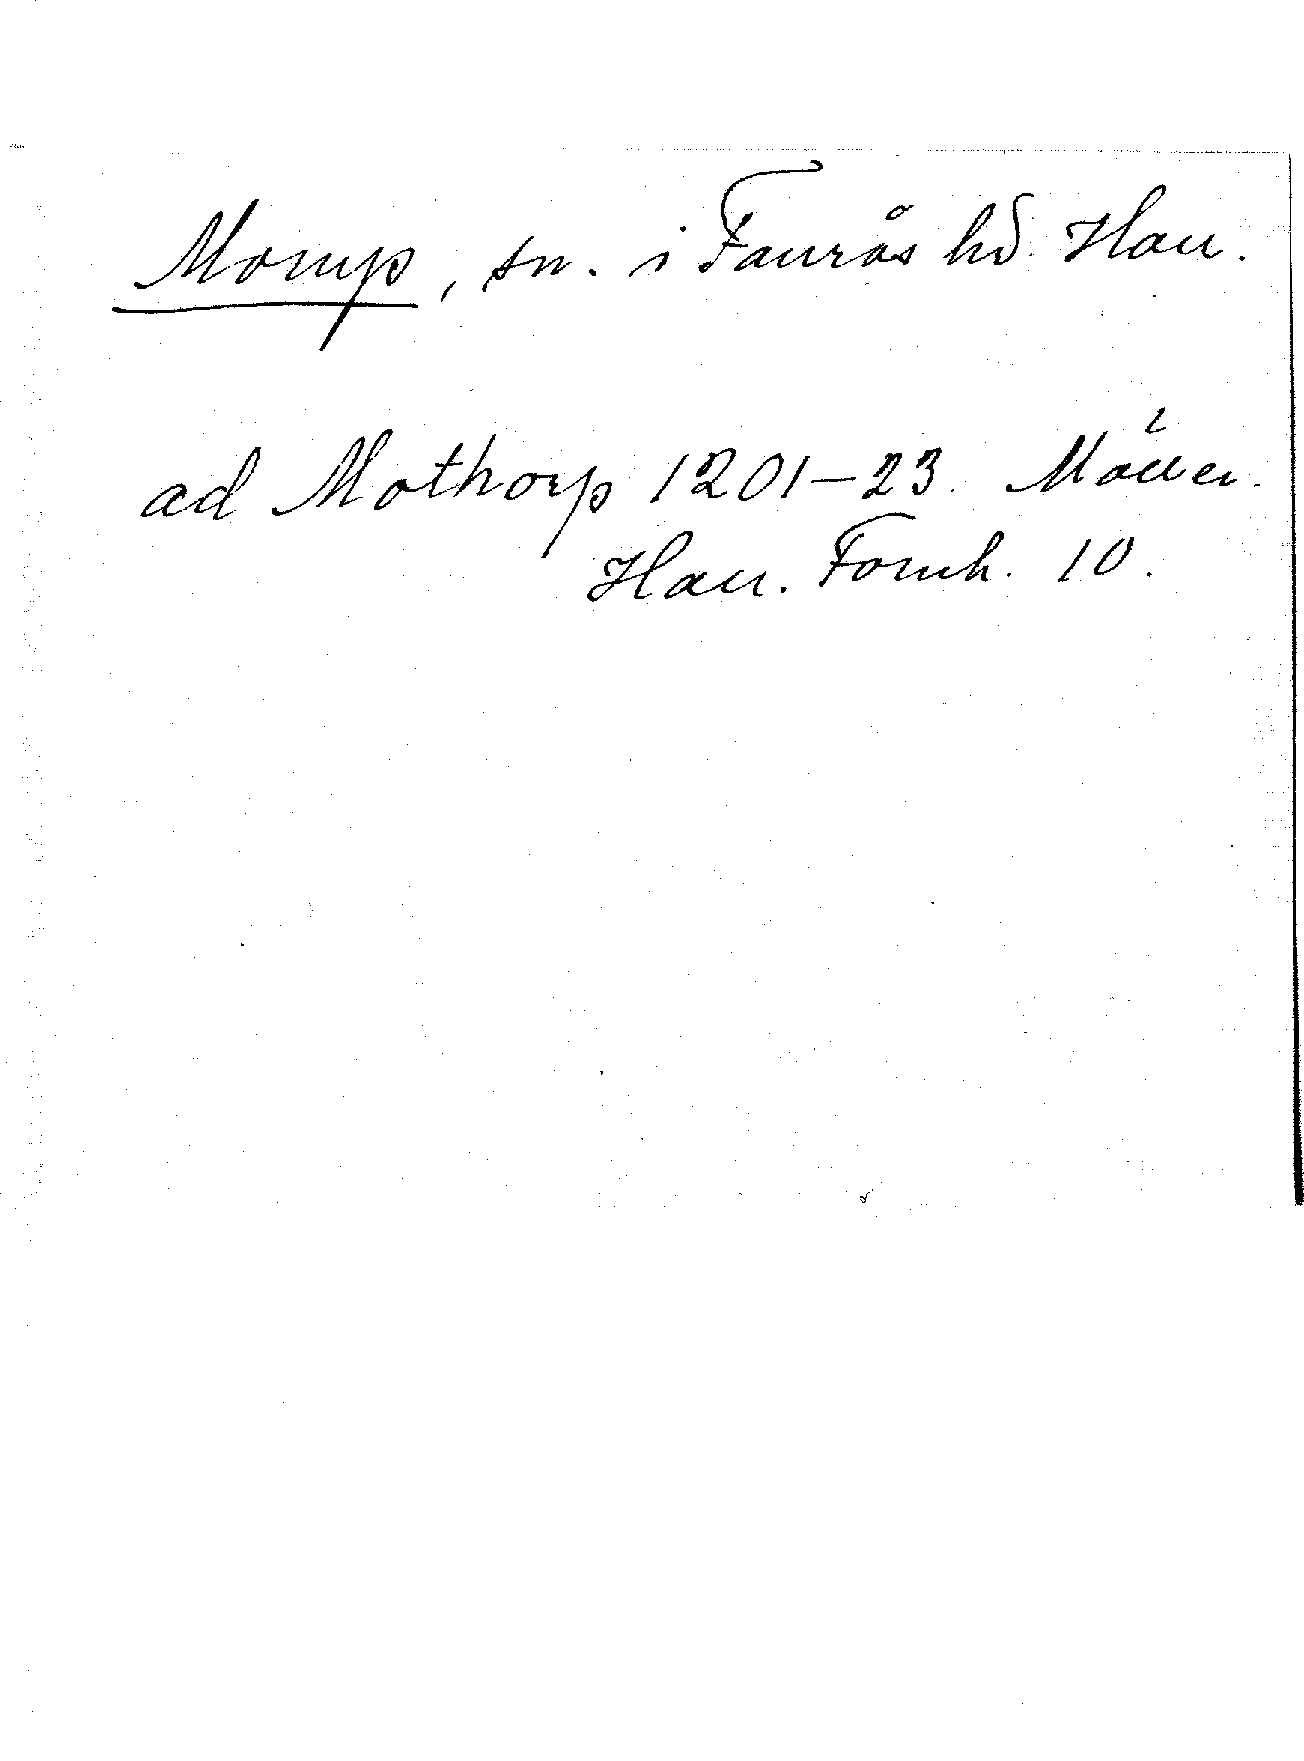 Morup, sn. i Faurås hd. Hall.
ad Mothorp 1201–23. Möller.
Hall. Fornh. 10.